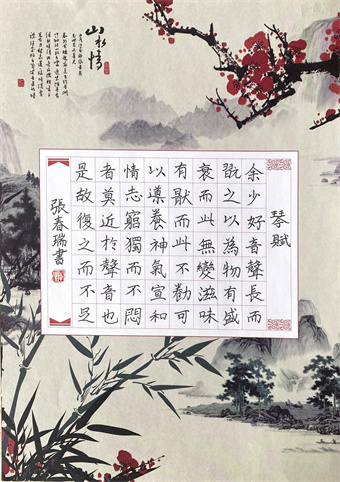 山水情
琴賦
余少好音聲長而
翫之以為物有盛
衰而此無變滋味
有猒而此不勌可
以導養神氣宣和
情志窮獨而不悶
者莫近於聲音也
是故復之而不足
張春瑞書